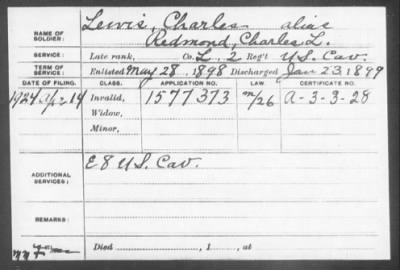 NAME OF SOLDIER: Lewis, Charles alias
Redmond, Charles L.
SERVICE: Late rank, Co. L, 2 Reg't U.S. Cav.
TERM OF SERVICE: Enlisted May 28, 1898 Discharged Jan 23 1899
DATE OF FILING. CLASS. APPLICATION NO. LAW. CERTIFICATE NO.
1924 Apr 14 Invalid, 1577373 A-3-3-28
Widow,
Minor,
ADDITIONAL SERVICES: E 8 U.S. Cav.
REMARKS:
Died , 1 , at